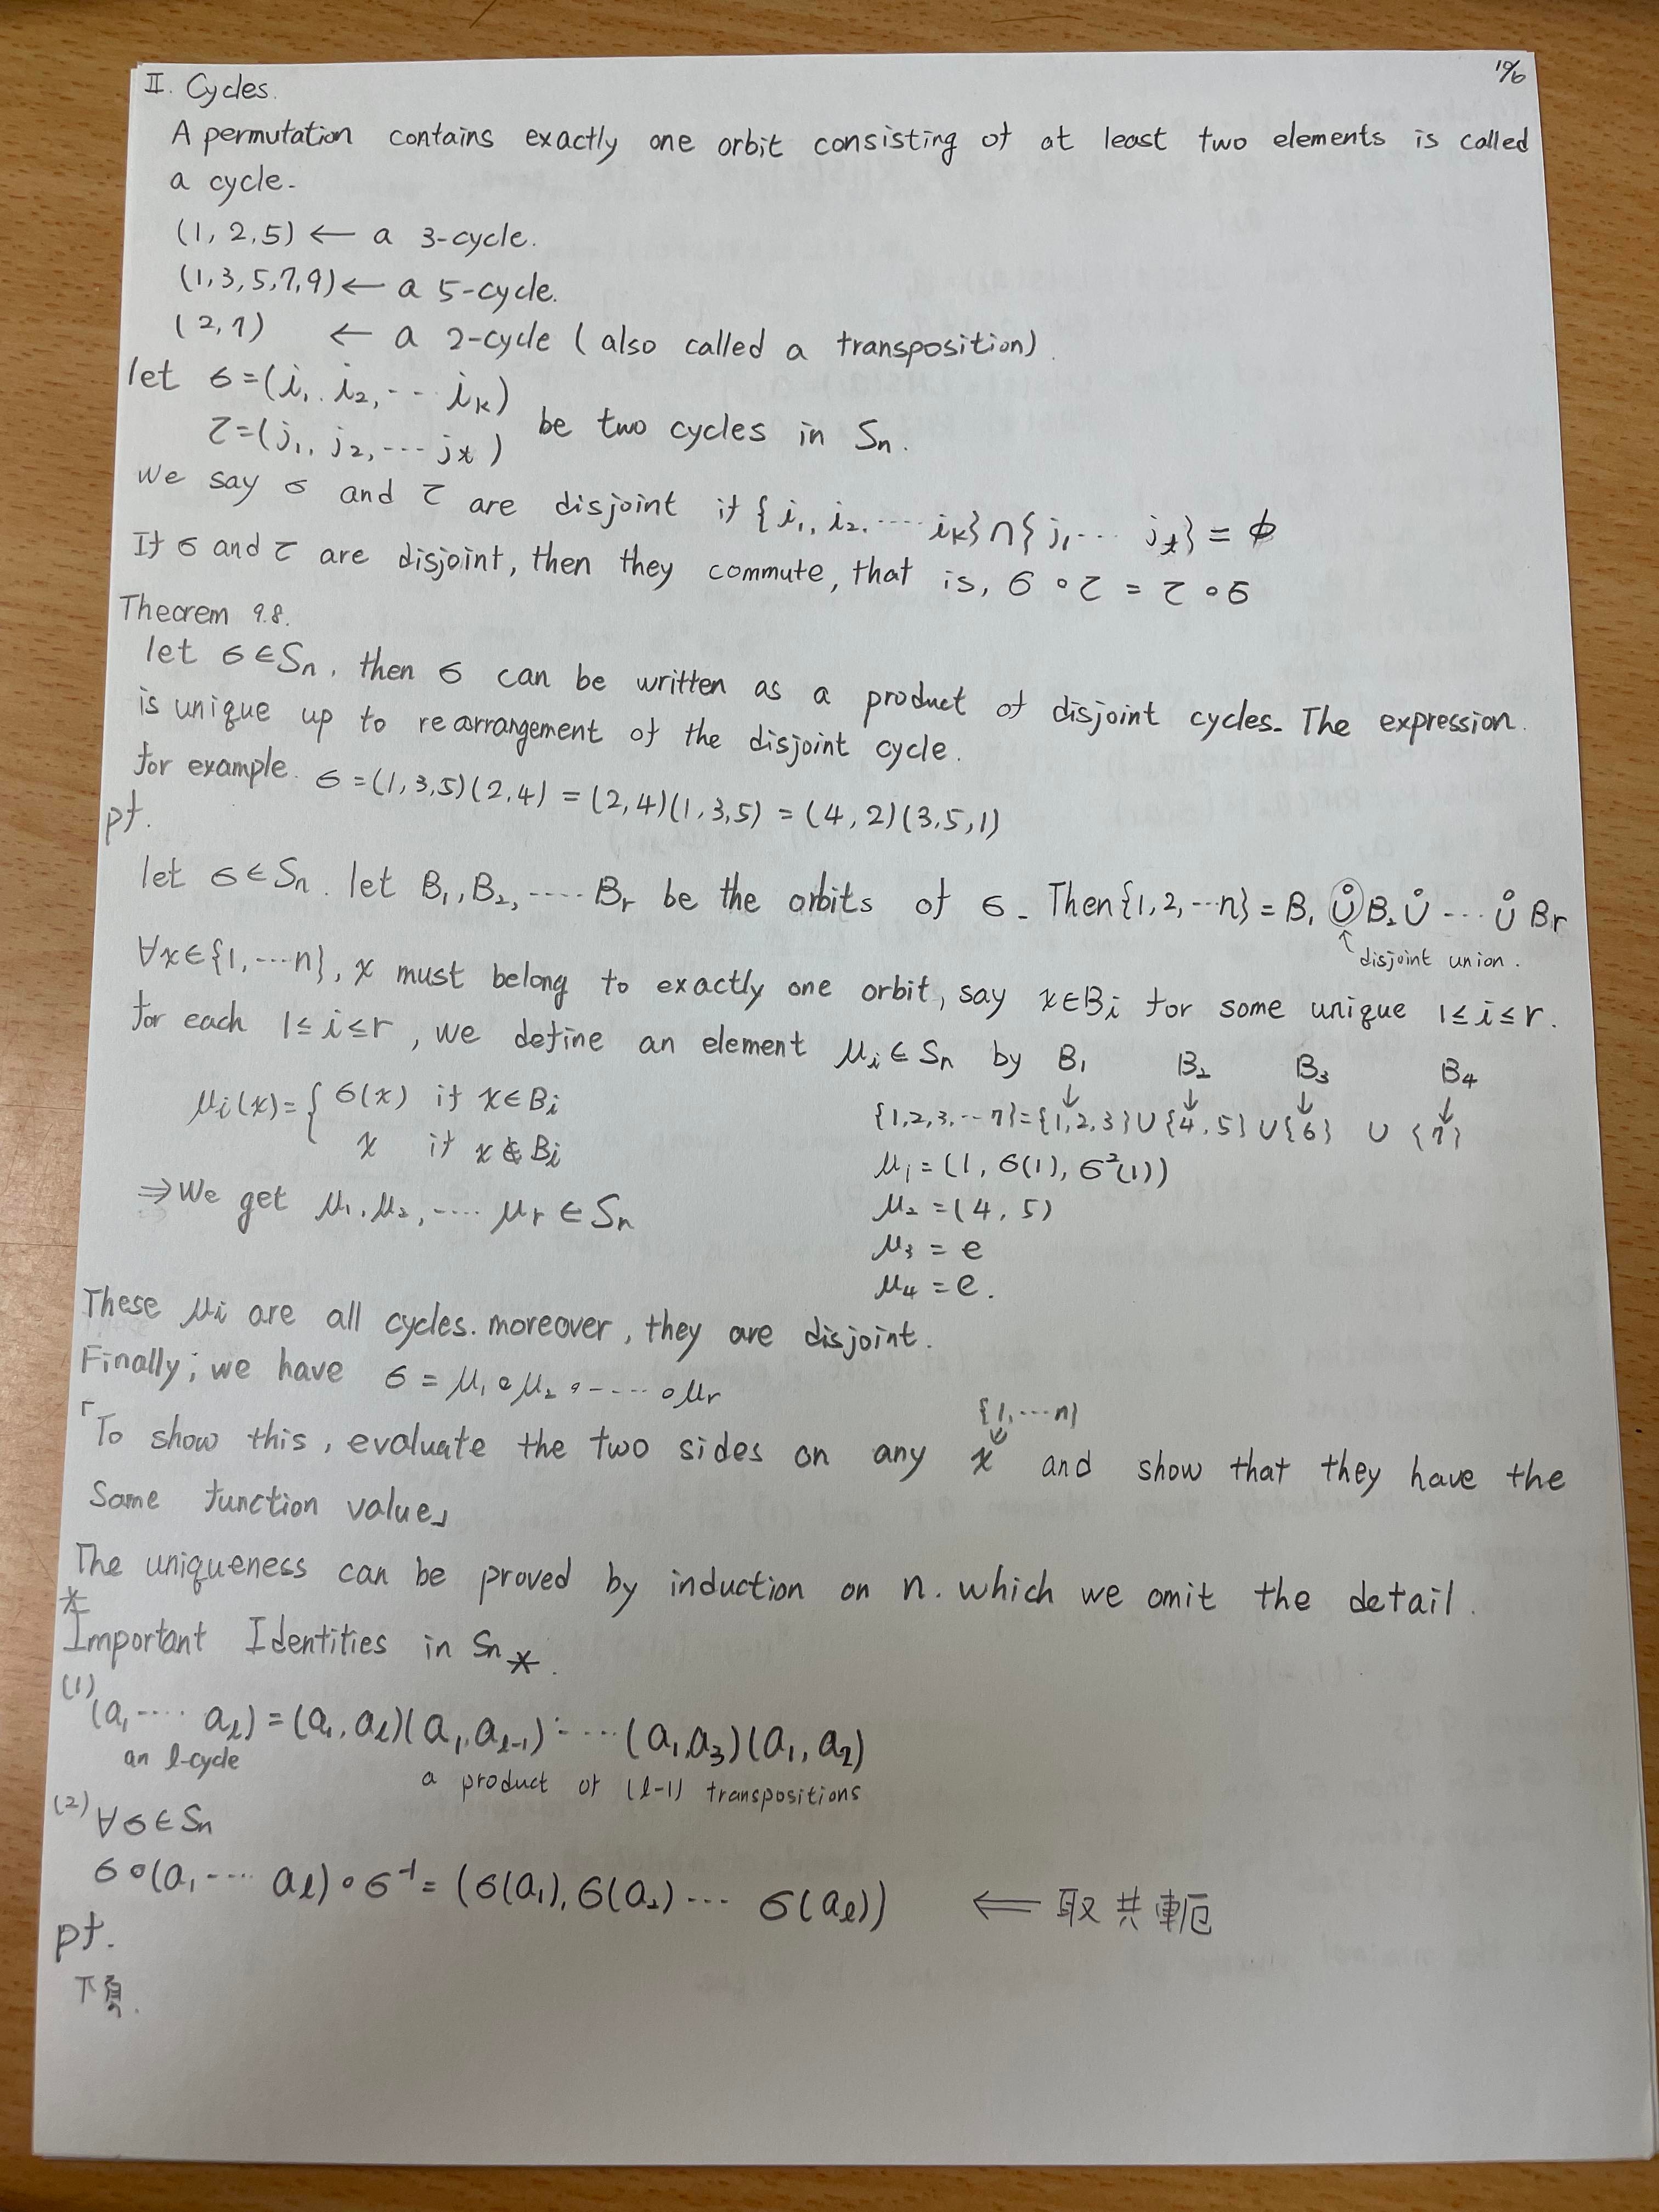 10/6
II. Cycles.
A permutation contains exactly one orbit consisting of at least two elements is called
a cycle.
(1, 2, 5) ← a 3-cycle.
(1, 3, 5, 7, 9) ← a 5-cycle.
(2, 7) ← a 2-cycle (also called a transposition).
let σ=(i₁, i₂, ... iₖ)
τ=(j₁, j₂, ... jₗ) be two cycles in Sₙ.
We say σ and τ are disjoint if {i₁, i₂, .... iₖ}∩{j₁ ... jₗ} = ∅
If σ and τ are disjoint, then they commute, that is, σ∘τ = τ∘σ
Theorem 9.8.
let σ∈Sₙ, then σ can be written as a product of disjoint cycles. The expression.
is unique up to rearrangement of the disjoint cycle.
for example. σ=(1,3,5)(2,4) = (2,4)(1,3,5) = (4,2)(3,5,1)
pf.
let σ∈Sₙ. let B₁, B₂, .... Bᵣ be the orbits of σ. Then {1,2,...n} = B₁ ⊍ B₂ ⊍ ... ⊍ Bᵣ
↑ disjoint union.
∀x∈{1,...n}, x must belong to exactly one orbit, say x∈Bᵢ for some unique 1≤i≤r.
for each 1≤i≤r, we define an element μᵢ∈Sₙ by
μᵢ(x)={ σ(x) if x∈Bᵢ
x if x∉Bᵢ
⇒We get μ₁, μ₂, .... μᵣ ∈ Sₙ
B₁ B₂ B₃ B₄
↓ ↓ ↓ ↓
{1,2,3,...7}={1,2,3}∪{4,5}∪{6} ∪ {7}
μ₁=(1, σ(1), σ²(1))
μ₂=(4, 5)
μ₃ = e
μ₄ = e.
These μᵢ are all cycles. moreover, they are disjoint.
Finally; we have σ = μ₁∘μ₂∘....∘μᵣ
{1,...n}
↓
「To show this, evaluate the two sides on any x and show that they have the
Same function value」
The uniqueness can be proved by induction on n. which we omit the detail.
*
Important Identities in Sₙ *.
(1) (a₁ .... aₗ) = (a₁, aₗ)(a₁, aₗ₋₁) .... (a₁,a₃)(a₁, a₂)
an l-cycle
a product of (l-1) transpositions
(2) ∀σ∈Sₙ
σ∘(a₁ ... aₗ)∘σ⁻¹ = (σ(a₁), σ(a₂) ... σ(aₗ)) ⟸ 取共軛
pf.
下頁.